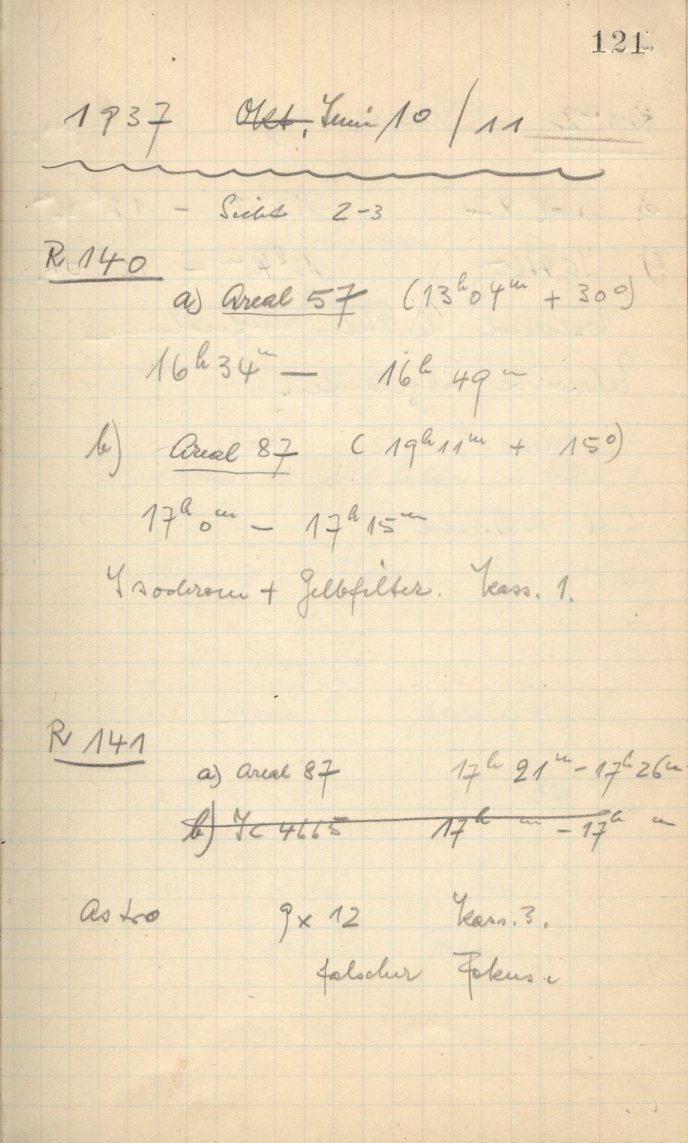 121
1937 Okt, Juni 10/11
Sicht 2-3
R 140
a) Areal 57 (13h04m + 30°)
16h34m — 16h 49m
b) Areal 87 ( 19h11m + 15°)
17h0m — 17h15m
Isochrom + Gelbfilter. Kass. 1.
R 141
a) Areal 87 17h 21m - 17h26m
b) IC 4665 17h m - 17h m
Astro 9x12 Kass. 3.
falscher Fokus.